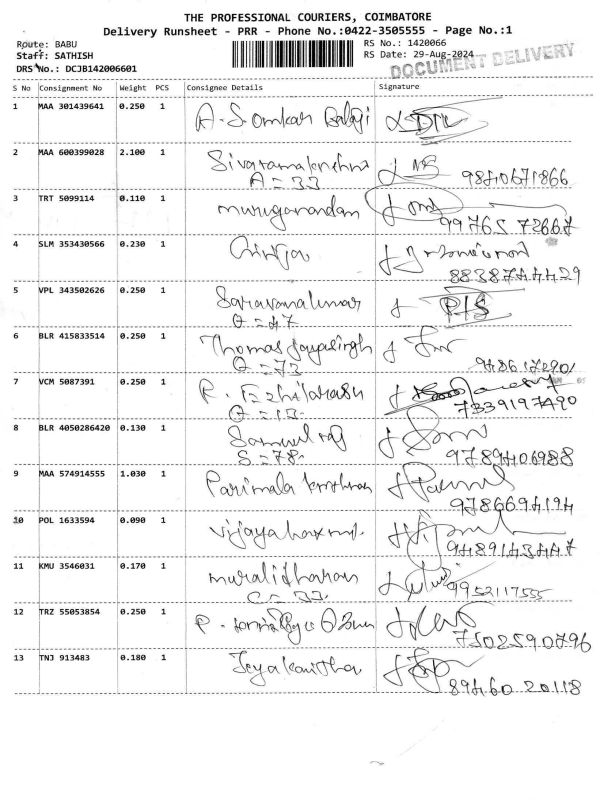 THE PROFESSIONAL COURIERS, COIMBATORE
Delivery Runsheet - PRR - Phone No.:0422-3505555 - Page No.:1
Route: BABU RS No.: 1420066
Staff: SATHISH RS Date: 29-Aug-2024
DOCUMENT DELIVERY
DRS No.: DCJB142006601
S No Consignment No Weight PCS Consignee Details Signature
1 MAA 301439641 0.250 1 A. S. Omkar Balaji
2 MAA 600399028 2.100 1 Sivaramakrishna
A = 33 9840671866
3 TRT 5099114 0.110 1 Muruganandan
99765 72667
4 SLM 353430566 0.230 1
8838744429
5 VPL 343502626 0.250 1 Saravanakumar
= 47
6 BLR 415833514 0.250 1 Thomas Jayasingh
= 73
7 VCM 5087391 0.250 1 R. Ezhilarasu
7339197490
8 BLR 4050286420 0.130 1 Samuel raj
S = 78. 9789406988
9 MAA 574914555 1.030 1 Parimala krishnan
9786694194
10 POL 1633594 0.090 1 Vijayalaxmi.
9489143447
11 KMU 3546031 0.170 1 muralitharan
C = 33. 9952117555
12 TRZ 55053854 0.250 1 P.
7502590796
13 TNJ 913483 0.180 1 Jeyakavitha
89460 20118